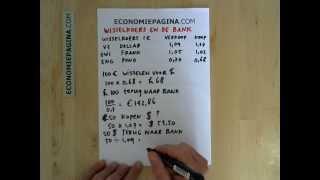 ECONOMIEPAGINA.COM
ECONOMIEPAGINA.COM
WISSELKOERS EN DE BANK
WISSELKOERS 1€ VERKOOP KOOP
VS DOLLAR 1,09 1,17
ZWI FRANK 1,05 1,02
ENG POND 0,70 0,68
100 € WISSELEN VOOR £
100 × 0,68 = £ 68
£ 100 TERUG NAAR BANK
100 / 0,7 = € 142,86
50 KOPEN $ ?
50 × 1,07 = $ 53,50
50 $ TERUG NAAR BANK
50 ÷ 1,09 =